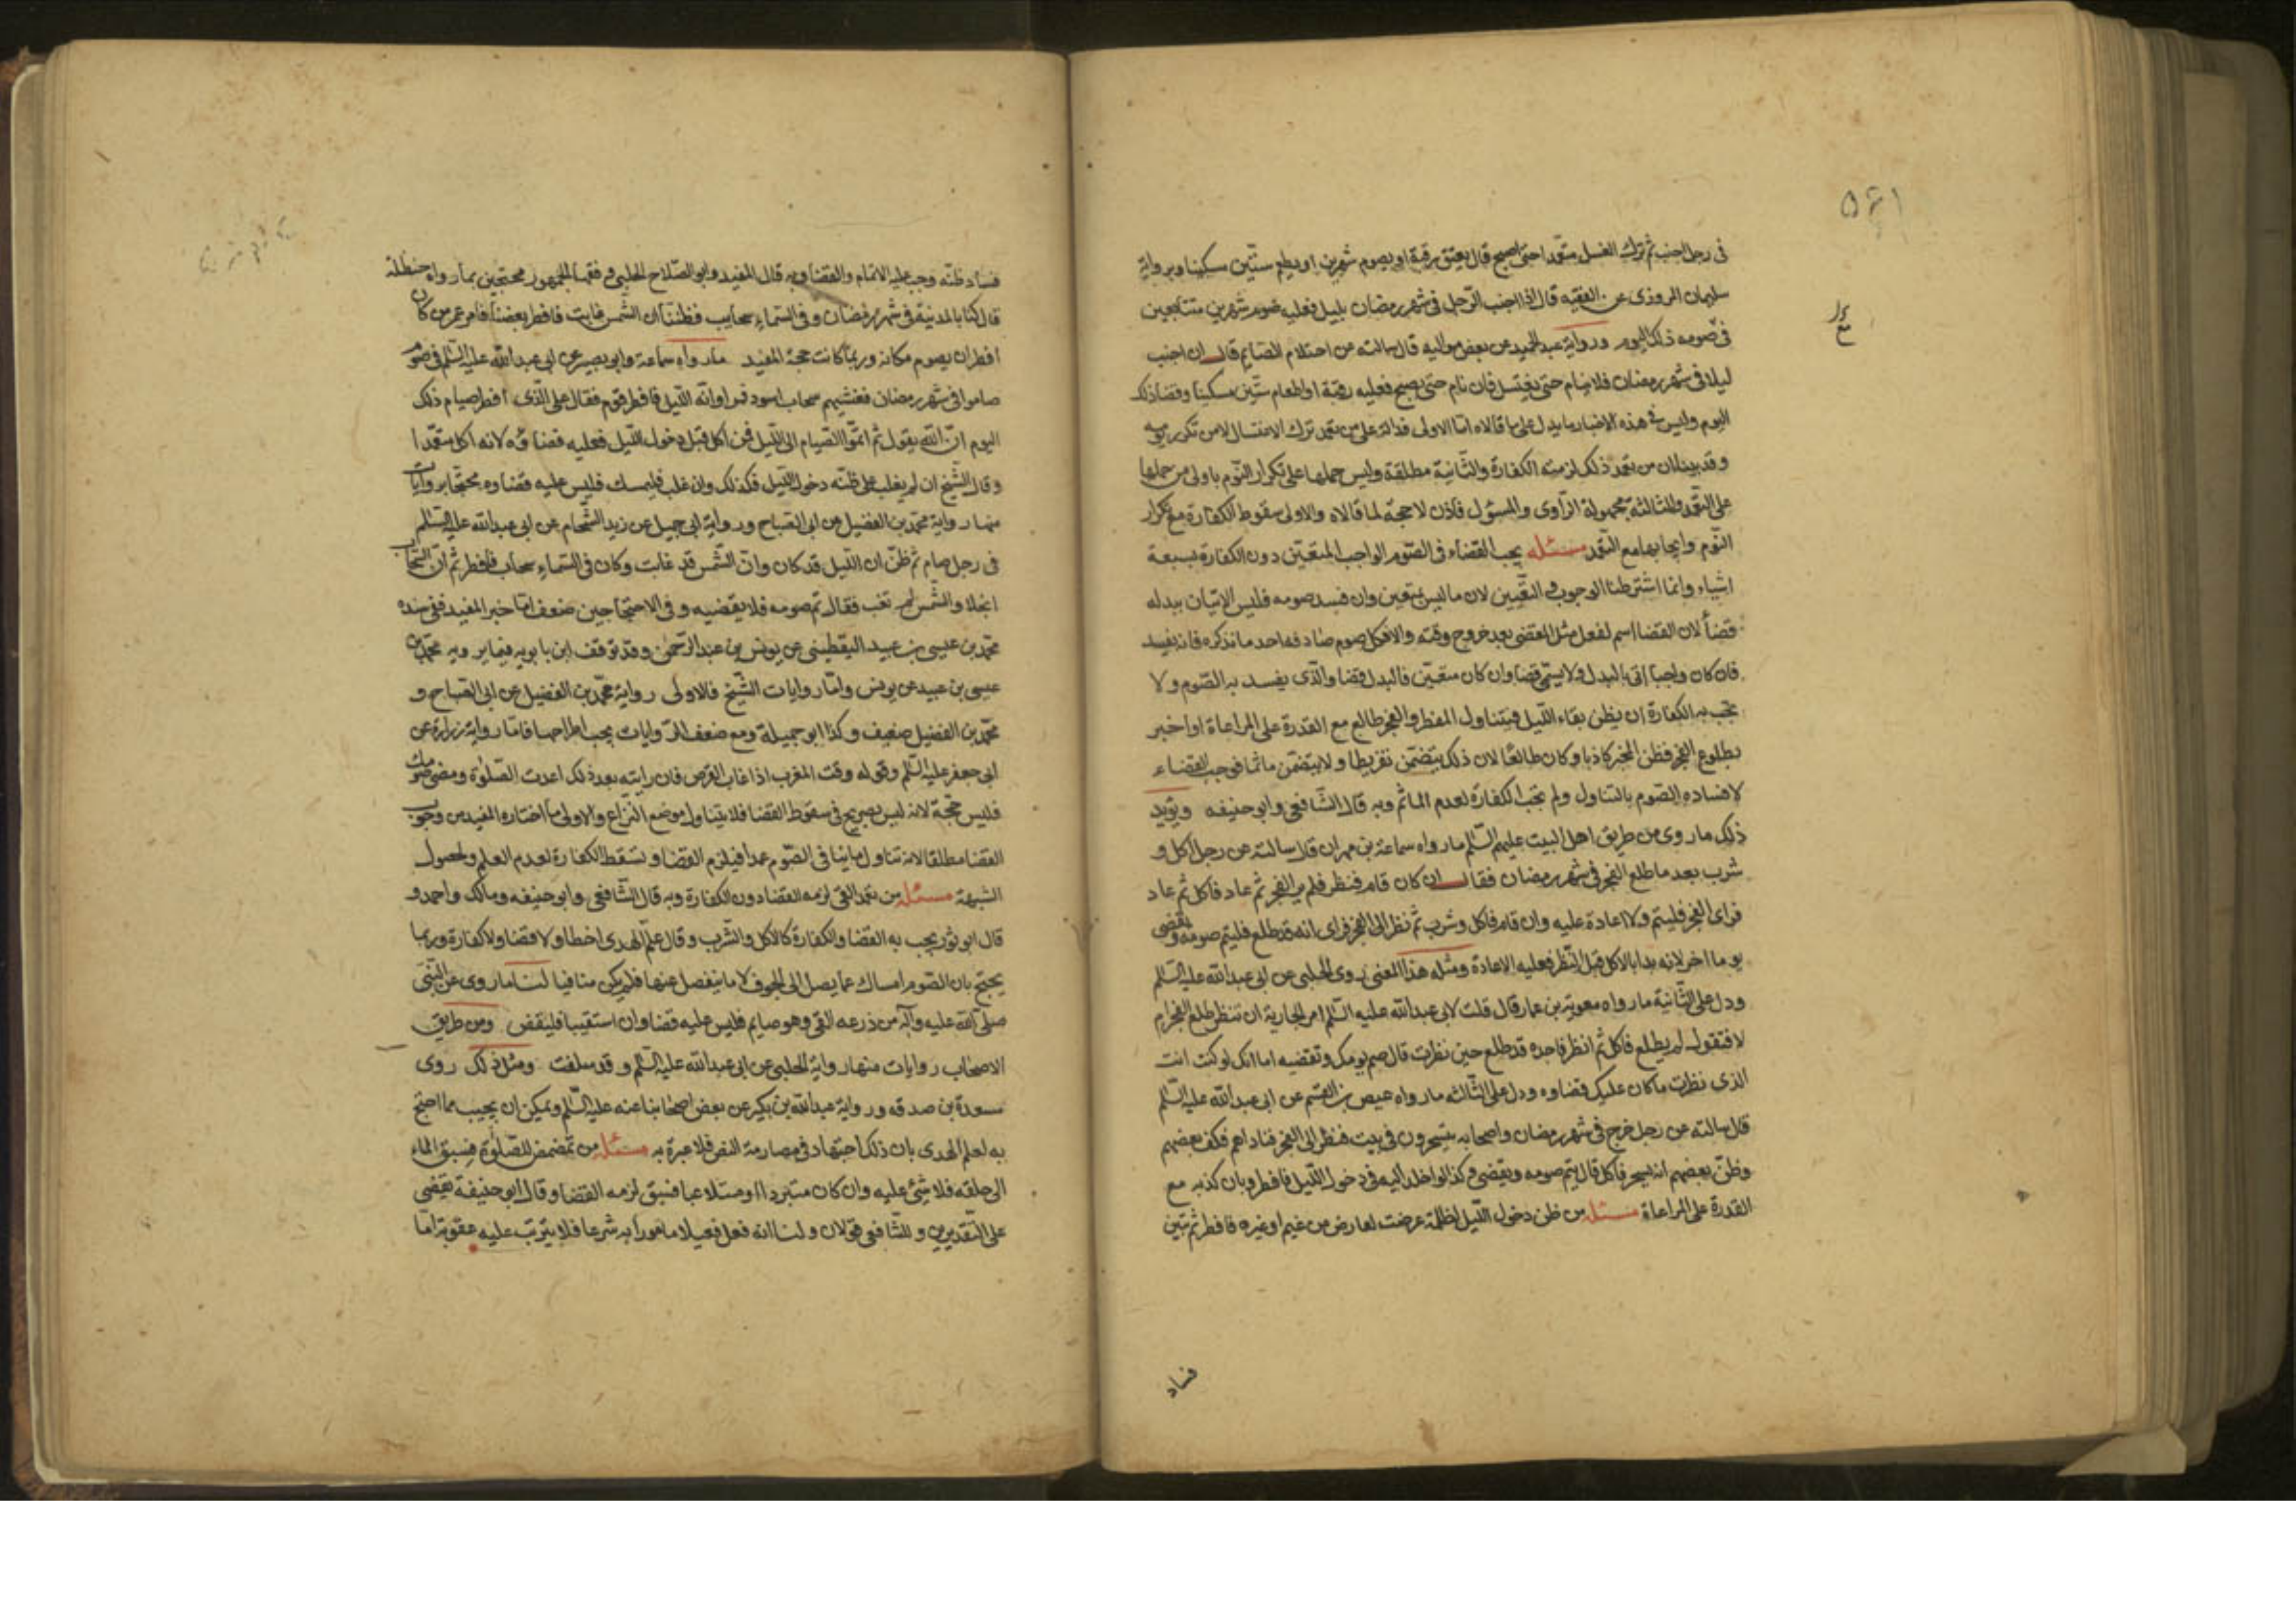 في رجل اجنب ثم ترك الغسل متعمدا حتى اصبح قال يعتق رقبة او يصوم شهرين او يطعم ستين مسكينا وبرواية
سليمان المروزي عن الفقيه قال اذا اجنب الرجل في شهر رمضان بليل فعليه صوم شهرين متتابعين
في صومه ذلك اليوم ورواية عبد الحميد عن بعض مواليه قال سالته عن احتلام الصايم قال ان اجنب
ليلا في شهر رمضان فلا ينام حتى يغتسل فان نام حتى يصبح فعليه رقبة او اطعام ستين مسكينا وقضا ذلك
اليوم وليس في هذه الاخبار ما يدل على ما قالاه اما الاولى فدالة على من تعمد ترك الاغتسال لا من تكرر نومه
وقد بينا ان من تعمد ذلك لزمته الكفارة والثانية مطلقة وليس حملها على تكرار النوم باولى من حملها
على التعمد والثالثة مجهولة الراوى والمسؤل فاذن لا حجة لما قالاه والاولى سقوط الكفارة مع تكرار
النوم وايجابها مع التعمد مسئله يجب القضاء في الصوم الواجب المتعين دون الكفارة بسبعة
اشياء وانما اشترطنا الوجوب والتعيين لان ما ليس بمتعين وان فسد صومه فليس الاتيان ببدله
قضأ لان القضا اسم لفعل مثل المقضى بعد خروج وقته والا فكل صوم صادفه احد ما نذكره فانه يفسد
فان كان واجبا اتى بالبدل ولا يسمى قضا وان كان متعين فالبدل قضا والذى يفسد به الصوم ولا
تجب به الكفارة ان يظن بقاء الليل فيتناول المفطر والفجر طالع مع القدرة على المراعاة او اخبر
بطلوع الفجر فظن المخبر كاذبا وكان طالعا لان ذلك يتضمن تفريطا ولا يتضمن ماثما فوجب القضاء
لافساده الصوم بالتناول ولم تجب الكفارة لعدم الماثم وبه قال الشافعي وابو حنيفه ويؤيد
ذلك ما روى من طريق اهل البيت عليهم السلم ما رواه سماعة بن مهران قال سالته عن رجل اكل و
شرب بعد ما طلع الفجر في شهر رمضان فقال ان كان قام فنظر فلم ير الفجر ثم عاد فاكل ثم عاد
فراى الفجر فليتم ولا اعادة عليه وان قام فاكل وشرب ثم نظر الى الفجر فراى انه قد طلع فليتم صومه ويقضى
يوما اخر لانه بدا بالاكل قبل النظر فعليه الاعادة ومثله هذا المعنى روى الحلبي عن ابي عبد الله عليه السلم
ودل على الثانية ما رواه معوية بن عمار قال قلت لابي عبد الله عليه السلم امر الجارية ان تنظر طلع الفجر ام
لا فتقول لم يطلع فاكل ثم انظر فاجده قد طلع حين نظرت قال صم يومك وتقضيه اما انك لو كنت انت
الذى نظرت ما كان عليك قضاوه ودل على الثالثه ما رواه عيص بن القسم عن ابي عبد الله عليه السلم
قال سالته عن رجل خرج في شهر رمضان واصحابه يتسحرون في بيت فنظر الى الفجر فناداهم فكف بعضهم
وظن بعضهم انه يسخر فاكل قال يتم صومه ويقضى وكذا لو اخلد اليه في دخول الليل فافطر وبان كذبه مع
القدرة على المراعاة مسئله من ظن دخول الليل لظلمة عرضت لعارض من غيم او غيره فافطر ثم تبين
فساد
فساد ظنه وجب عليه الاتمام والقضا وبه قال المفيد وابو الصلاح الحلبي وفقها الجمهور محتجين بما رواه حنظلة
قال كنا بالمدينة في شهر رمضان وفي السماء سحايب فظننا ان الشمس غابت فافطر بعضنا فامر عمر من كان
افطر ان يصوم مكانه وربما كانت حجة المفيد ما رواه سماعة وابو بصير عن ابي عبد الله عليه السلم في قوم
صاموا في شهر رمضان فغشيهم سحاب اسود فراوا انه الليل فافطر قوم فقال على الذى افطر صيام ذلك
اليوم ان الله يقول ثم اتموا الصيام الى الليل فمن اكل قبل دخول الليل فعليه قضاؤه لانه اكل متعمدا
وقال الشيخ ان لم يغلب على ظنه دخول الليل فكذلك وان غلب فليمسك فليس عليه قضاوه محتجا بروايات
منها رواية محمد بن الفضيل عن ابي الصباح ورواية ابي جميل عن زيد الشحام عن ابي عبد الله عليه السلم
في رجل صام ثم ظن ان الليل قد كان وان الشمس قد غابت وكان في السماء سحاب فافطر ثم ان السحاب
انجلا والشمس لم تغب فقال تم صومه فلا يقضيه وفي الاحتجاجين ضعف اما خبر المفيد ففي سنده
محمد بن عيسى بن عبيد اليقطيني عن يونس بن عبد الرحمن وقد توقف ابن بابويه فيما يرويه محمد بن
عيسى بن عبيد عن يونس واما روايات الشيخ فالاولى رواية محمد بن الفضيل عن ابي الصباح و
محمد بن الفضيل ضعيف وكذا ابو جميلة ومع ضعف الروايات يجب اطراحها فاما رواية زرارة عن
ابي جعفر عليه السلم وقوله وقت المغرب اذا غاب القرص فان رايته بعد ذلك اعدت الصلوة ومضى صومك
فليس حجة لانه ليس بصريح في سقوط القضا فلا يتناول موضع النزاع والاولى ما اختاره المفيد من وجوب
القضا مطلقا لانه تناول ما ينافي الصوم عمدا فيلزم القضا وتسقط الكفارة لعدم العلم ولحصول
الشبهة مسئله من تعمد القى لزمه القضا دون الكفارة وبه قال الشافعي وابو حنيفه ومالك واحمد و
قال ابو ثور يجب به القضا والكفارة كالاكل والشرب وقال علم الهدى اخطا ولا قضا ولا كفارة وربما
يحتج بان الصوم امساك عما يصل الى الجوف لا ما ينفصل عنها فلم يكن منافيا لنا ما روى عن النبي
صلى الله عليه وآله من ذرعه القى وهو صايم فليس عليه قضا وان استقيا فليقض ومن طريق
الاصحاب روايات منها رواية الحلبي عن ابي عبد الله عليه السلم وقد سلفت ومثل ذلك روى
مسعدة بن صدقه ورواية عبد الله بن بكير عن بعض اصحابنا عنه عليه السلم ويمكن ان يجيب مما احتج
به لعلم الهدى بان ذلك اجتهاد في مصادمة النص فلا عبرة به مسئله من تمضمض للصلوة فسبق الماء
الى حلقه فلا شئ عليه وان كان متبردا او متلاعبا فسبق لزمه القضا وقال ابو حنيفة يقضى
على التقديرين وللشافعي قولان ولنا انه فعل فعلا مامورا به شرعا فلا يترتب عليه عقوبة اما